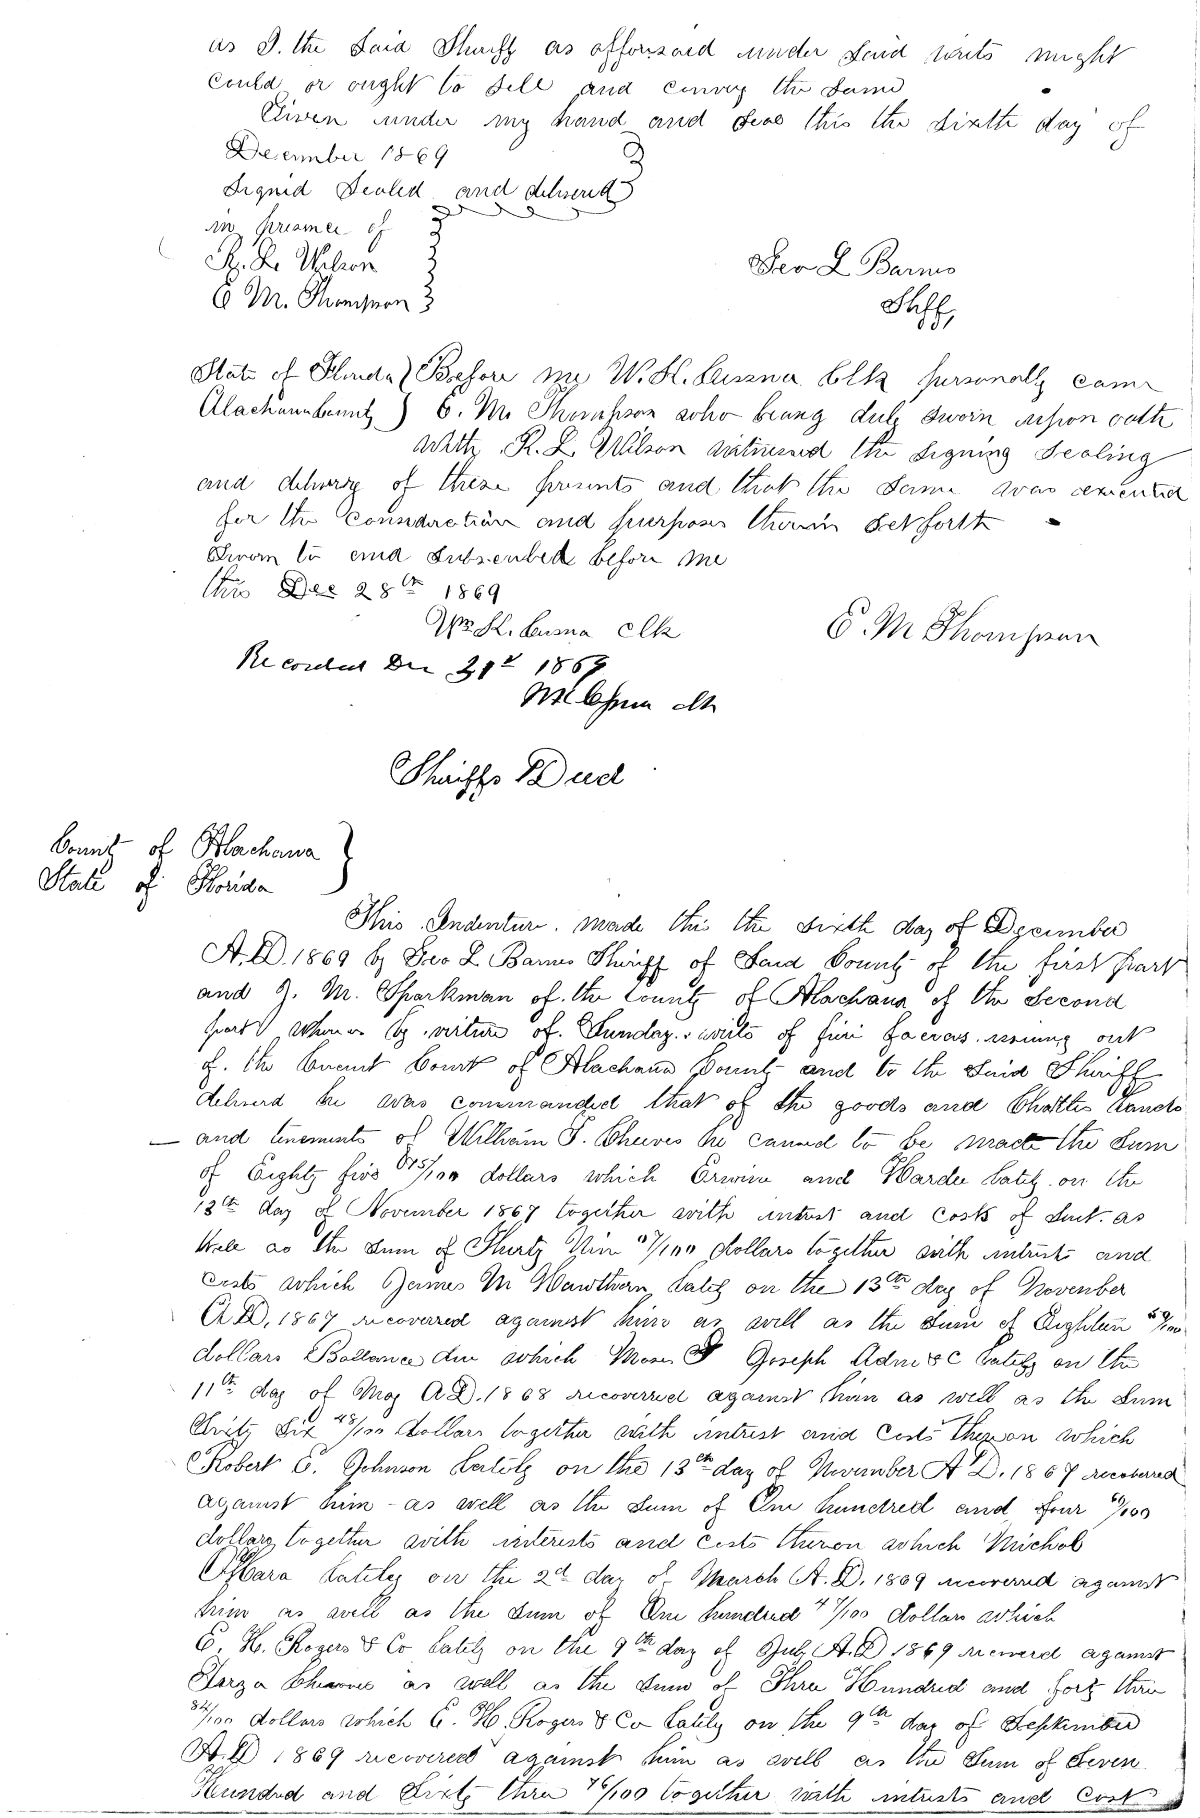 as I. the Said Sheriff as afforesaid under Said writs might
Could or ought to Sell and convey the Same
Given under my hand and Seal this the Sixth day of
December 1869
Signed Sealed and delivered
in presence of
R. L. Wilson
E M. Thompson
Geo L Barnes
Shff,
State of Florida Before me W. K. Cessna Clk personally came
Alachua County E. M. Thompson who being duly Sworn upon oath
with R. L. Wilson witnessed the Signing Sealing
and delivery of these presents and that the Same was executed
for the Consideration and purposes therein Set forth
Sworn to and Subscribed before me
this Dec 28th 1869
Wm K. Cessna Clk
E. M Thompson
Recorded Dec 31st 1869
WK Cessna clk
Sheriffs Deed
County of Alachua
State of Florida
This Indenture. made this the Sixth day of December
A.D. 1869 by Geo L Barnes Sheriff of Said County of the first part
and J. M. Sparkman of the County of Alachua of the Second
part Whereas by virture of Sunday writs of fieri facias issuing out
of the Circuit Court of Alachua County and to the Said Sheriff
deliverd he was commanded that of the goods and Chattles Lands
and tenements of William F. Cheeves he caused to be made the Sum
of Eighty five 75/100 dollars which Erwin and Hardee lately on the
13th day of November 1867 together with intrest and Costs of Suit. as
Well as the Sum of Thirty Nine /100 dollars together with intrest and
Costs which James M Hawthorn lately on the 13th day of November
A.D. 1867 recoverred against him as well as the Sum of Eighteen 59/100
dollars Ballance due which Moses Joseph Adm &C lately on the
11th day of May A.D. 1868 recoverred against him as well as the Sum
Sixty Six 48/100 dollars together with intrest and Costs thereon which
Robert E. Johnson Lately on the 13th day of November A D. 1867 recoverred
against him - as well as the Sum of One hundred and four /100
dollars together with interests and Costs thereon which Michol
OHara Lately on the 2d day of March A. D. 1869 recoverred against
him as well as the Sum of One hundred 47/100 dollars which
E. H. Rogers & Co Lately on the 9th day of July A.D 1869 recoverd against
as well as the Sum of Three Hundred and forty three
34/100 dollars which E. H. Rogers & Co lately on the 9th day of September
A.D 1869 recovered against him as well as the Sum of Seven
Hundred and Sixty three 76/100 together with intrests and Cost